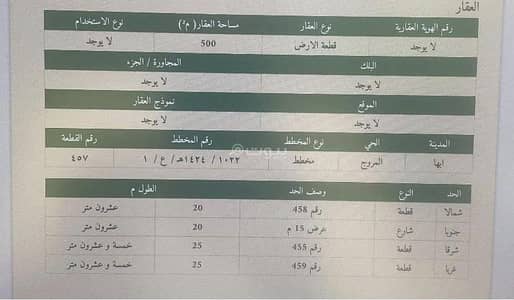 العقار
رقم الهوية العقارية نوع العقار مساحة العقار( م²) نوع الاستخدام
لا يوجد قطعة الارض 500 لا يوجد
البلك المجاورة / الجزء
لا يوجد لا يوجد
الموقع نموذج العقار
لا يوجد لا يوجد
المدينة الحي نوع المخطط رقم المخطط رقم القطعة
ابها المروج مخطط ١٠٢٢ / ١٤٢٤هـ / ع / ١ ٤٥٧
الحد النوع وصف الحد الطول م
شمالا قطعة رقم 458 20 عشرون متر
جنوبا شارع عرض 15 م 20 عشرون متر
شرقا قطعة رقم 455 25 خمسة و عشرون متر
غربا قطعة رقم 459 25 خمسة و عشرون متر
بيوت